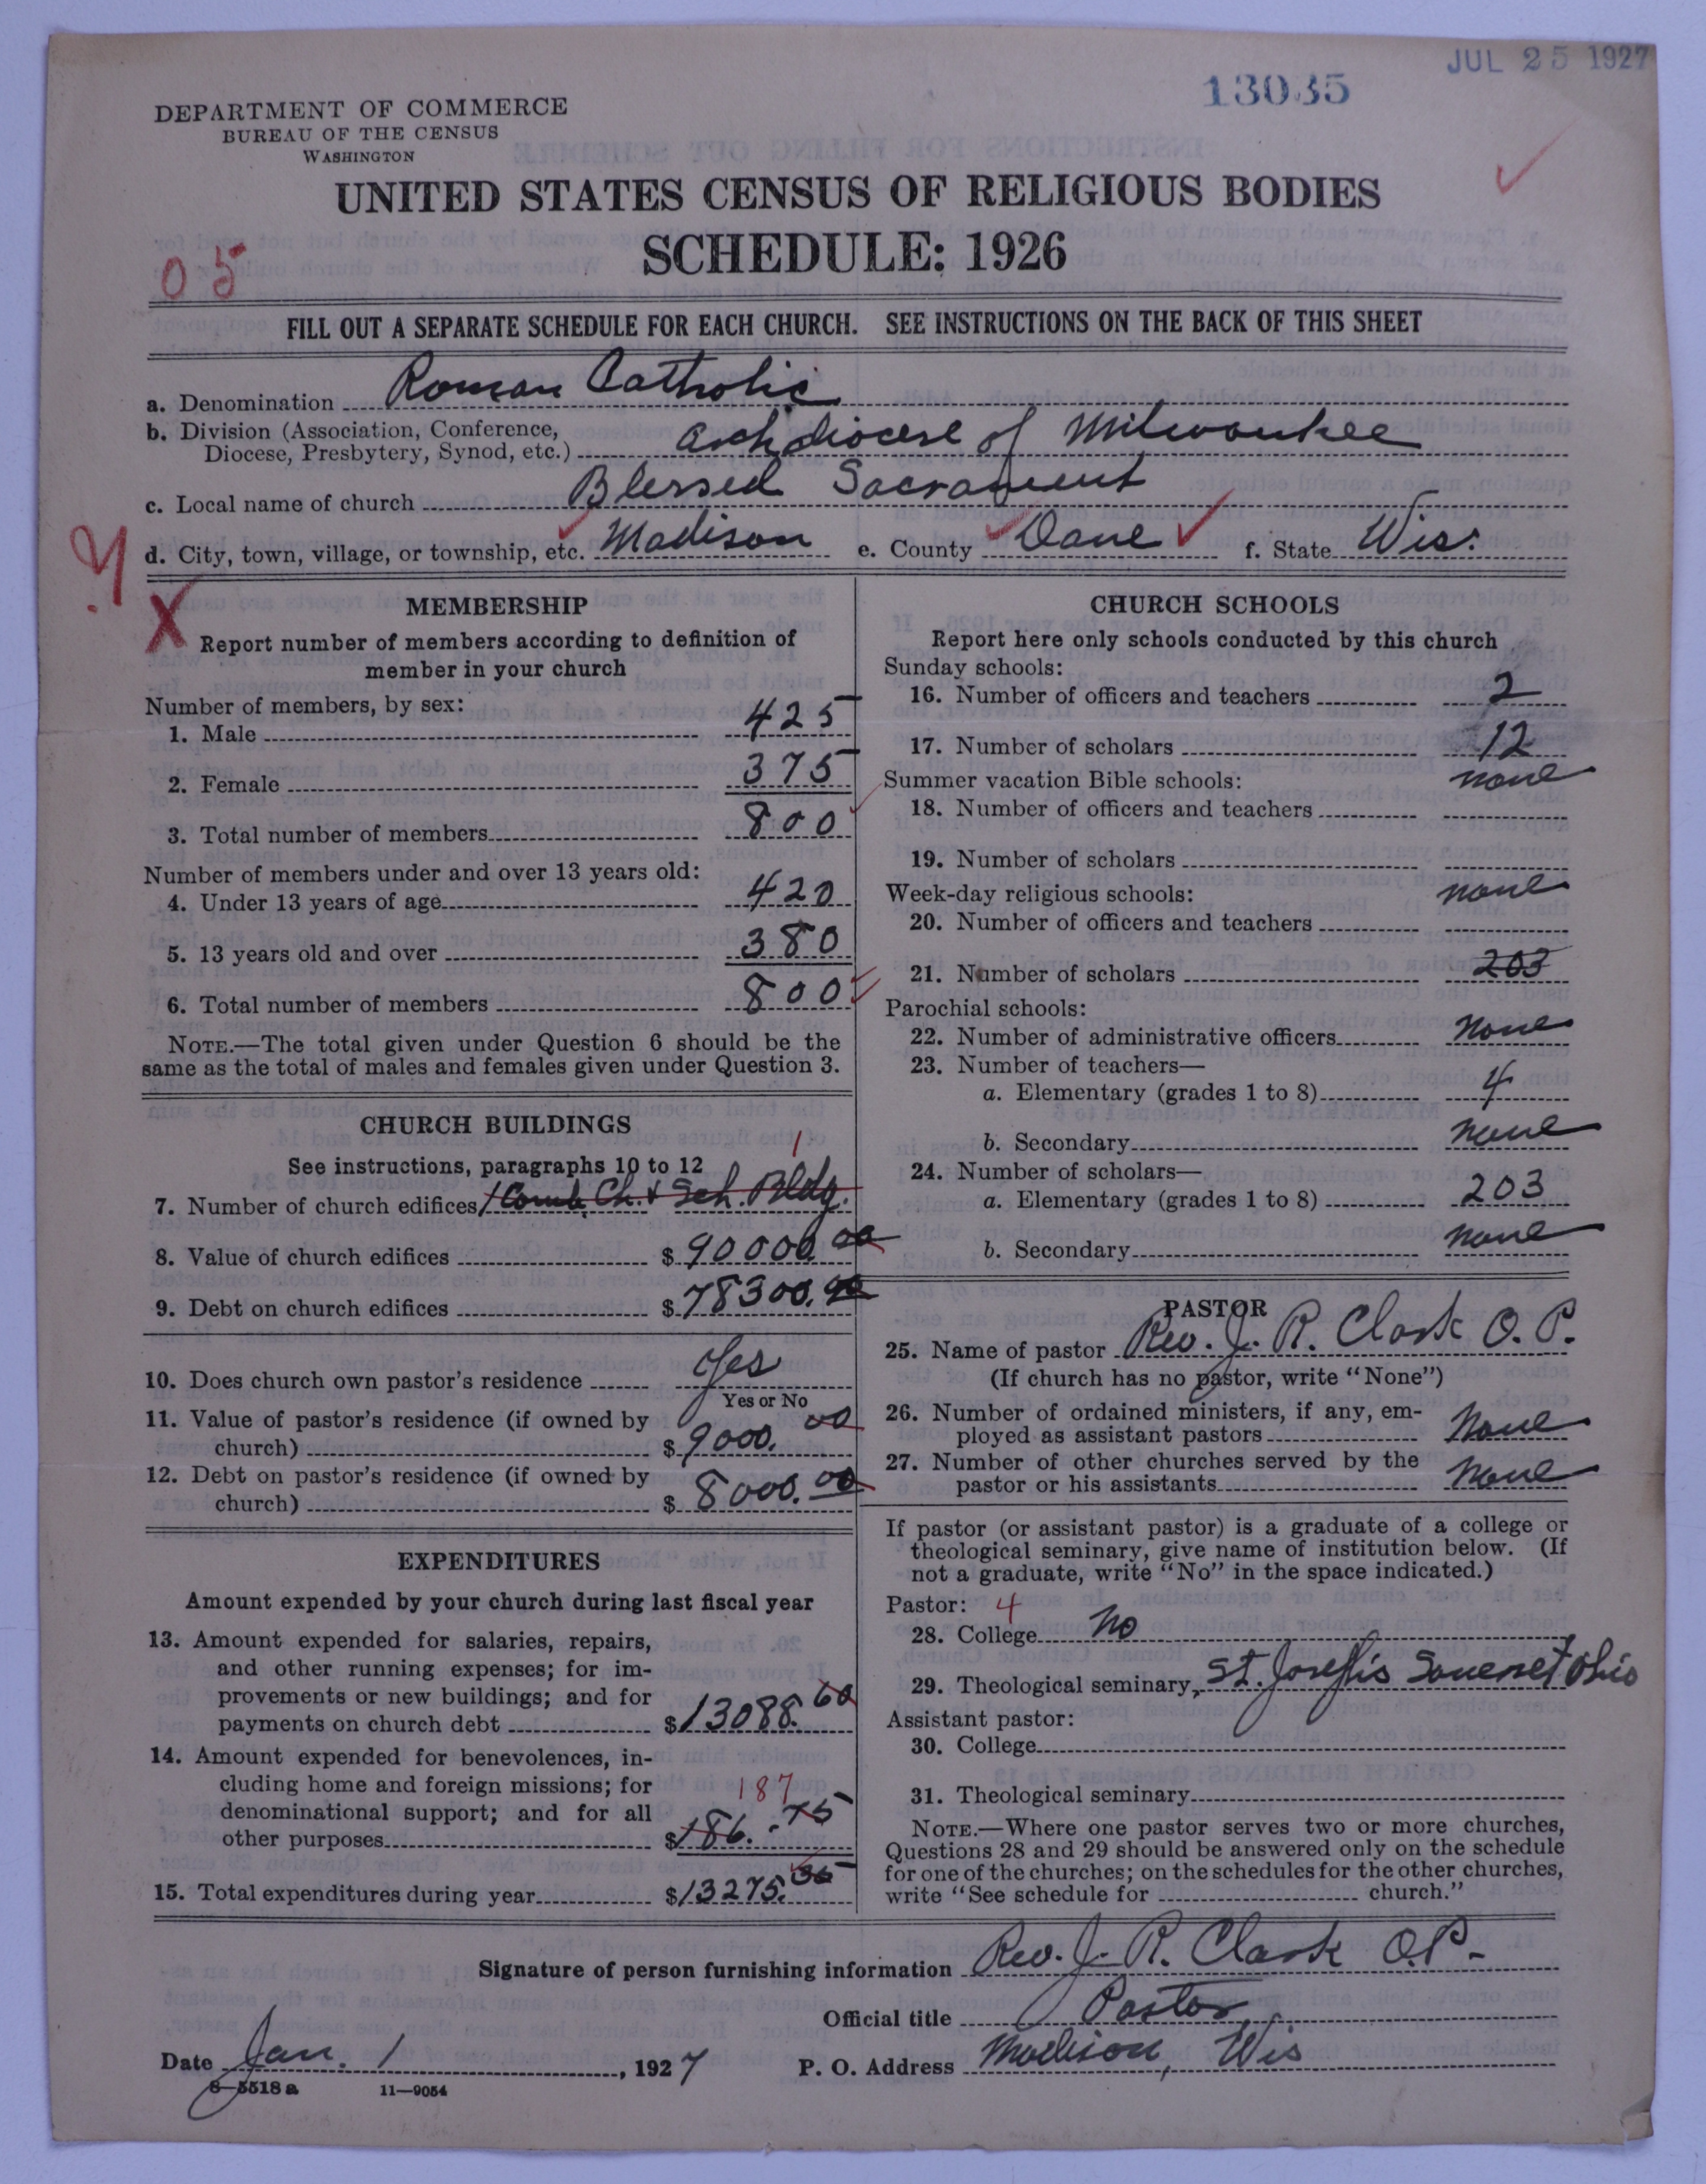 JUL 25 1927
13035
DEPARTMENT OF COMMERCE
BUREAU OF THE CENSUS
WASHINGTON
UNITED STATES CENSUS OF RELIGIOUS BODIES
SCHEDULE: 1926
05
FILL OUT A SEPARATE SCHEDULE FOR EACH CHURCH. SEE INSTRUCTIONS ON THE BACK OF THIS SHEET
a. Denomination Roman Catholic
b. Division (Association, Conference,
Diocese, Presbytery, Synod, etc.) Archdiocese of Milwaukee
c. Local name of church Blessed Sacrament
d. City, town, village, or township, etc. Madison e. County Dane f. State Wis.
X
MEMBERSHIP
Report number of members according to definition of
member in your church
Number of members, by sex:
1. Male 425
2. Female 375
3. Total number of members 800
Number of members under and over 13 years old:
4. Under 13 years of age 420
5. 13 years old and over 380
6. Total number of members 800
NOTE.—The total given under Question 6 should be the
same as the total of males and females given under Question 3.
CHURCH BUILDINGS
See instructions, paragraphs 10 to 12
1
7. Number of church edifices 1 Comb. Ch. & Sch. Bldg.
8. Value of church edifices $90000.00
9. Debt on church edifices $78300.00
10. Does church own pastor's residence Yes
Yes or No
11. Value of pastor's residence (if owned by
church) $9000.00
12. Debt on pastor's residence (if owned by
church) $8000.00
EXPENDITURES
Amount expended by your church during last fiscal year
13. Amount expended for salaries, repairs,
and other running expenses; for im-
provements or new buildings; and for
payments on church debt $13088.60
14. Amount expended for benevolences, in-
cluding home and foreign missions; for
187
denominational support; and for all
other purposes $186.75
15. Total expenditures during year $13275.35
CHURCH SCHOOLS
Report here only schools conducted by this church
Sunday schools:
16. Number of officers and teachers 2
17. Number of scholars 12
Summer vacation Bible schools: none
18. Number of officers and teachers
19. Number of scholars
Week-day religious schools: none
20. Number of officers and teachers
21. Number of scholars 203
Parochial schools:
22. Number of administrative officers none
23. Number of teachers—
a. Elementary (grades 1 to 8) 4
b. Secondary none
24. Number of scholars—
a. Elementary (grades 1 to 8) 203
b. Secondary none
PASTOR
25. Name of pastor Rev. J. R. Clark O. P.
(If church has no pastor, write "None")
26. Number of ordained ministers, if any, em-
ployed as assistant pastors None
27. Number of other churches served by the
pastor or his assistants None
If pastor (or assistant pastor) is a graduate of a college or
theological seminary, give name of institution below. (If
not a graduate, write "No" in the space indicated.)
Pastor: 4
28. College No
29. Theological seminary, St. Joseph's Somerset Ohio
Assistant pastor:
30. College
31. Theological seminary
NOTE.—Where one pastor serves two or more churches,
Questions 28 and 29 should be answered only on the schedule
for one of the churches; on the schedules for the other churches,
write "See schedule for church."
Signature of person furnishing information Rev. J. R. Clark O.P.
Official title Pastor,
Date Jan. 1, 1927 P. O. Address Madison, Wis
8—5518 a 11—9054